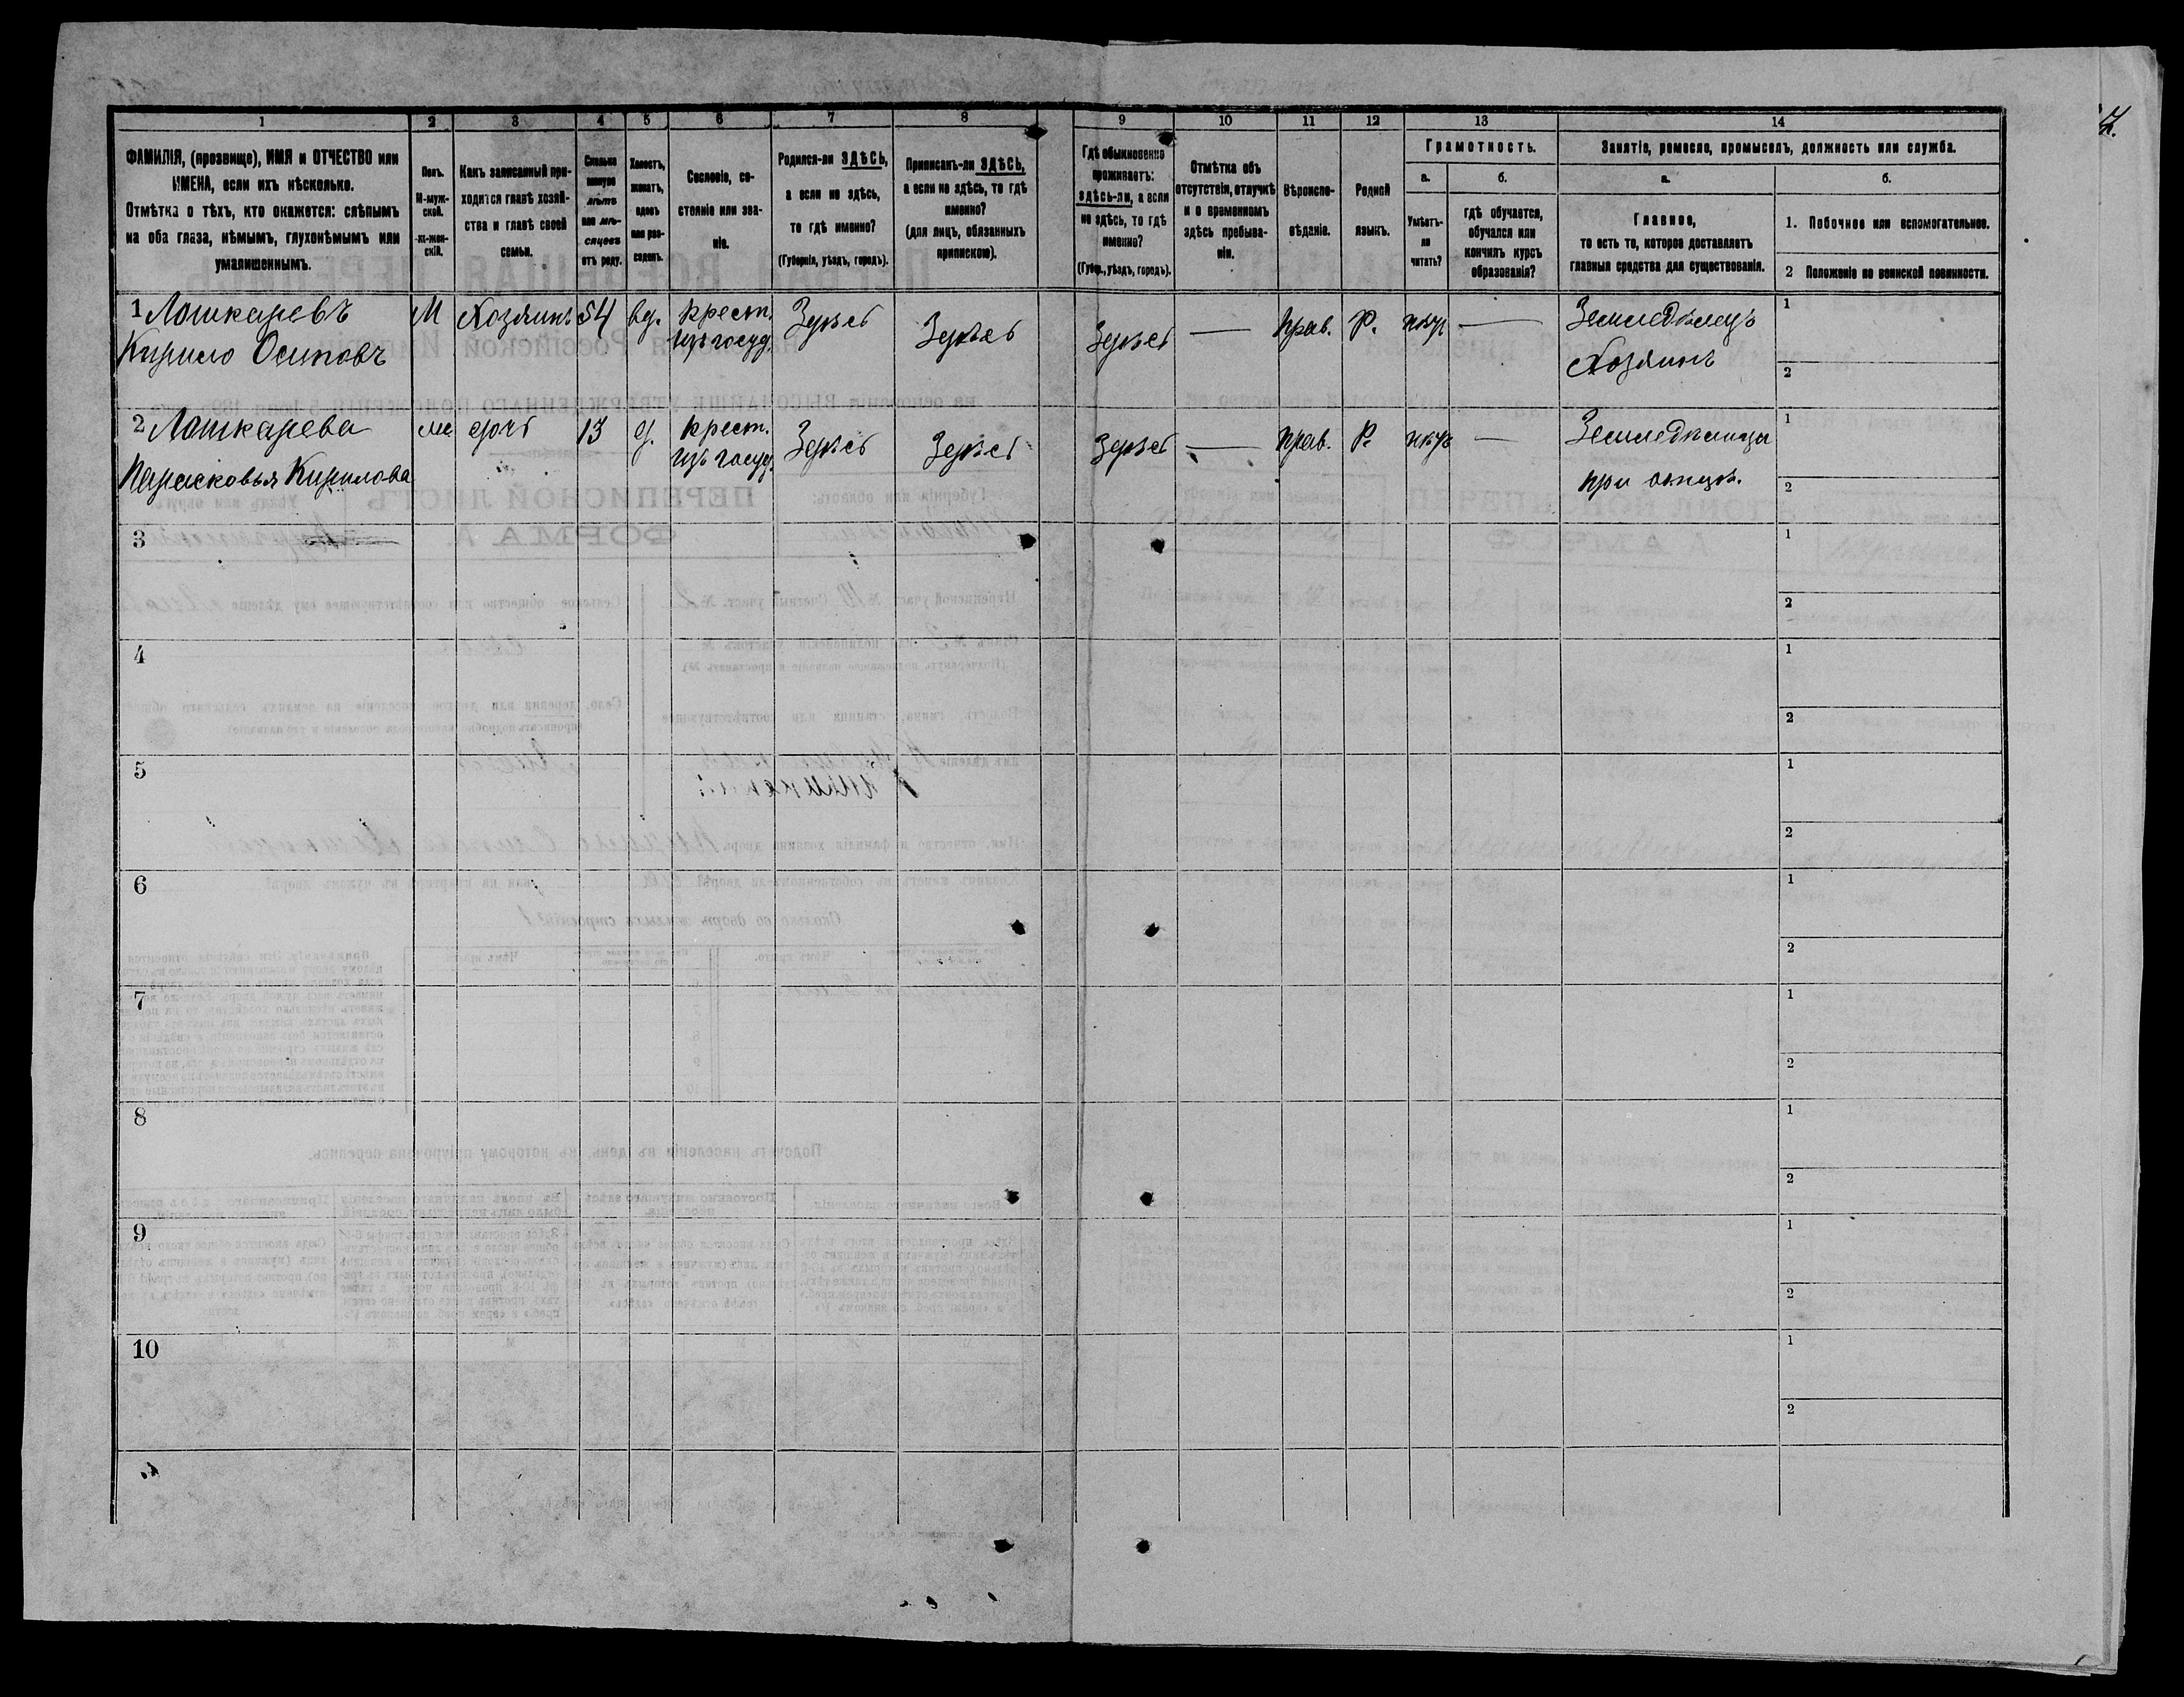 1 2 3 4 5 6 7 8 9 10 11 12 13 14
ФАМИЛІЯ, (прозвище), ИМЯ и ОТЧЕСТВО или
ИМЕНА, если ихъ нѣсколько.
Отмѣтка о тѣхъ, кто окажется: слѣпымъ
на оба глаза, нѣмымъ, глухонѣмымъ или
умалишеннымъ.
Полъ.
М-муж-
ской.
ж-жен-
скій.
Какъ записанный при-
ходится главѣ хозяй-
ства и главѣ своей
семьи.
Сколько
минуло
лѣтъ
или мѣ-
сяцевъ
отъ роду.
Холостъ,
женатъ,
вдовъ
или раз-
веденъ.
Сословіе, со-
стояніе или зва-
ніе.
Родился-ли ЗДѢСЬ,
а если не здѣсь,
то гдѣ именно?
(Губернія, уѣздъ, городъ).
Приписанъ-ли ЗДѢСЬ,
а если не здѣсь, то гдѣ
именно?
(для лицъ, обязанныхъ
припискою).
Гдѣ обыкновенно
проживаетъ:
здѣсь-ли, а если
не здѣсь, то гдѣ
именно?
(Губер., уѣздъ, городъ).
Отмѣтка объ
отсутствіи, отлучкѣ
и о временномъ
здѣсь пребыва-
ніи.
Вѣроиспо-
вѣданіе.
Родной
языкъ.
Грамотность.
а.
Умѣетъ-
ли
читать?
б.
гдѣ обучается,
обучался или
кончилъ курсъ
образованія?
Занятіе, ремесло, промыселъ, должность или служба.
а.
Главное,
то есть то, которое доставляетъ
главныя средства для существованія.
б.
1. Побочное или вспомогательное.
2 Положеніе по воинской повинности.
1 Лошкаревъ М Хозяинъ 54 вд. крест. Здѣсь Здѣсь Здѣсь — прав. Р. нѣт — Земледѣлецъ 1
Кирило Осиповъ изъ госуд. Хозяинъ 2
2 Лошкарева ж дочь 13 д. крест. Здѣсь Здѣсь Здѣсь — прав. Р. нѣтъ — Земледѣлица 1
Парасковья Кирилова изъ госуд. при отцѣ. 2
3 1
2
4 1
2
5 1
2
6 1
2
7 1
2
8 1
2
9 1
2
10 1
2